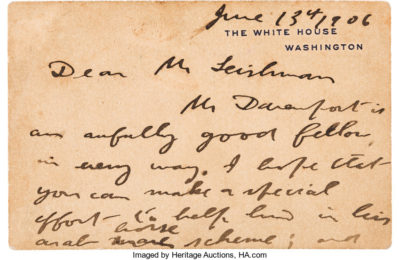 June 13th 1906
THE WHITE HOUSE
WASHINGTON
Dear Mr Leishman
Mr Davenport is
an awfully good fellow
in every way. I hope that
you can make a special
effort to help him in his
horse
arab mare scheme; and
Imaged by Heritage Auctions, HA.com